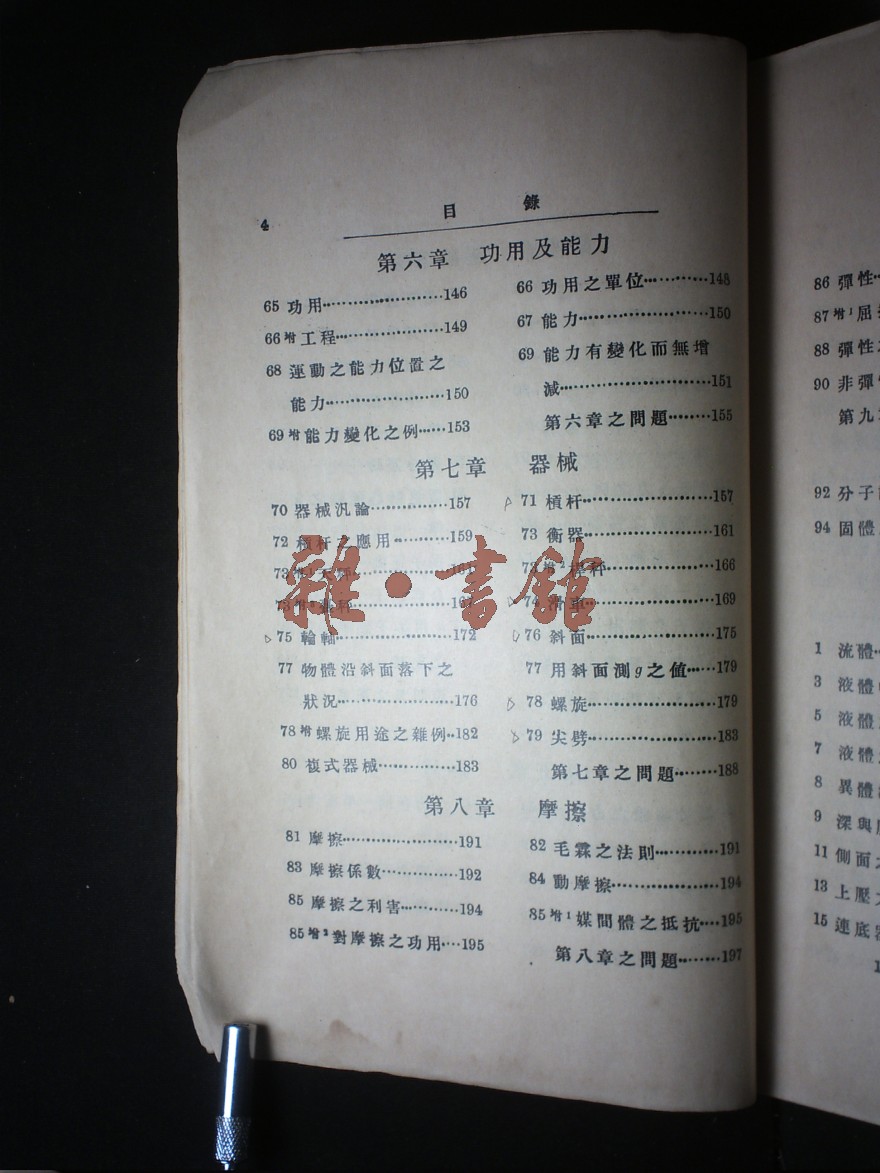 4
目錄
第六章 功用及能力
65 功用……146
66 功用之單位……148
66附工程……149
67 能力……150
68 運動之能力位置之
能力……150
69 能力有變化而無增
減……151
69附能力變化之例……153
第六章之問題……155
第七章 器械
70 器械汎論……157
71 槓杆……157
72 槓杆之應用……159
73 衡器……161
166
167
74 滑車……169
75 輪軸……172
76 斜面……175
77 物體沿斜面落下之
狀況……176
77 用斜面測g之値……179
78 螺旋……179
78附螺旋用途之雜例……182
79 尖劈……183
80 複式器械……183
第七章之問題……188
第八章 摩擦
81 摩擦……191
82 毛霖之法則……191
83 摩擦係數……192
84 動摩擦……194
85 摩擦之利害……194
85附1媒間體之抵抗……195
85附2對摩擦之功用……195
第八章之問題……197
雜·書館
86 彈性
87附1屈
88 彈性
90 非彈
第九
92 分子
94 固體
1 流體
3 液體
5 液體
7 液體
8 異體
9 深與
11 側面
13 上壓
15 連底